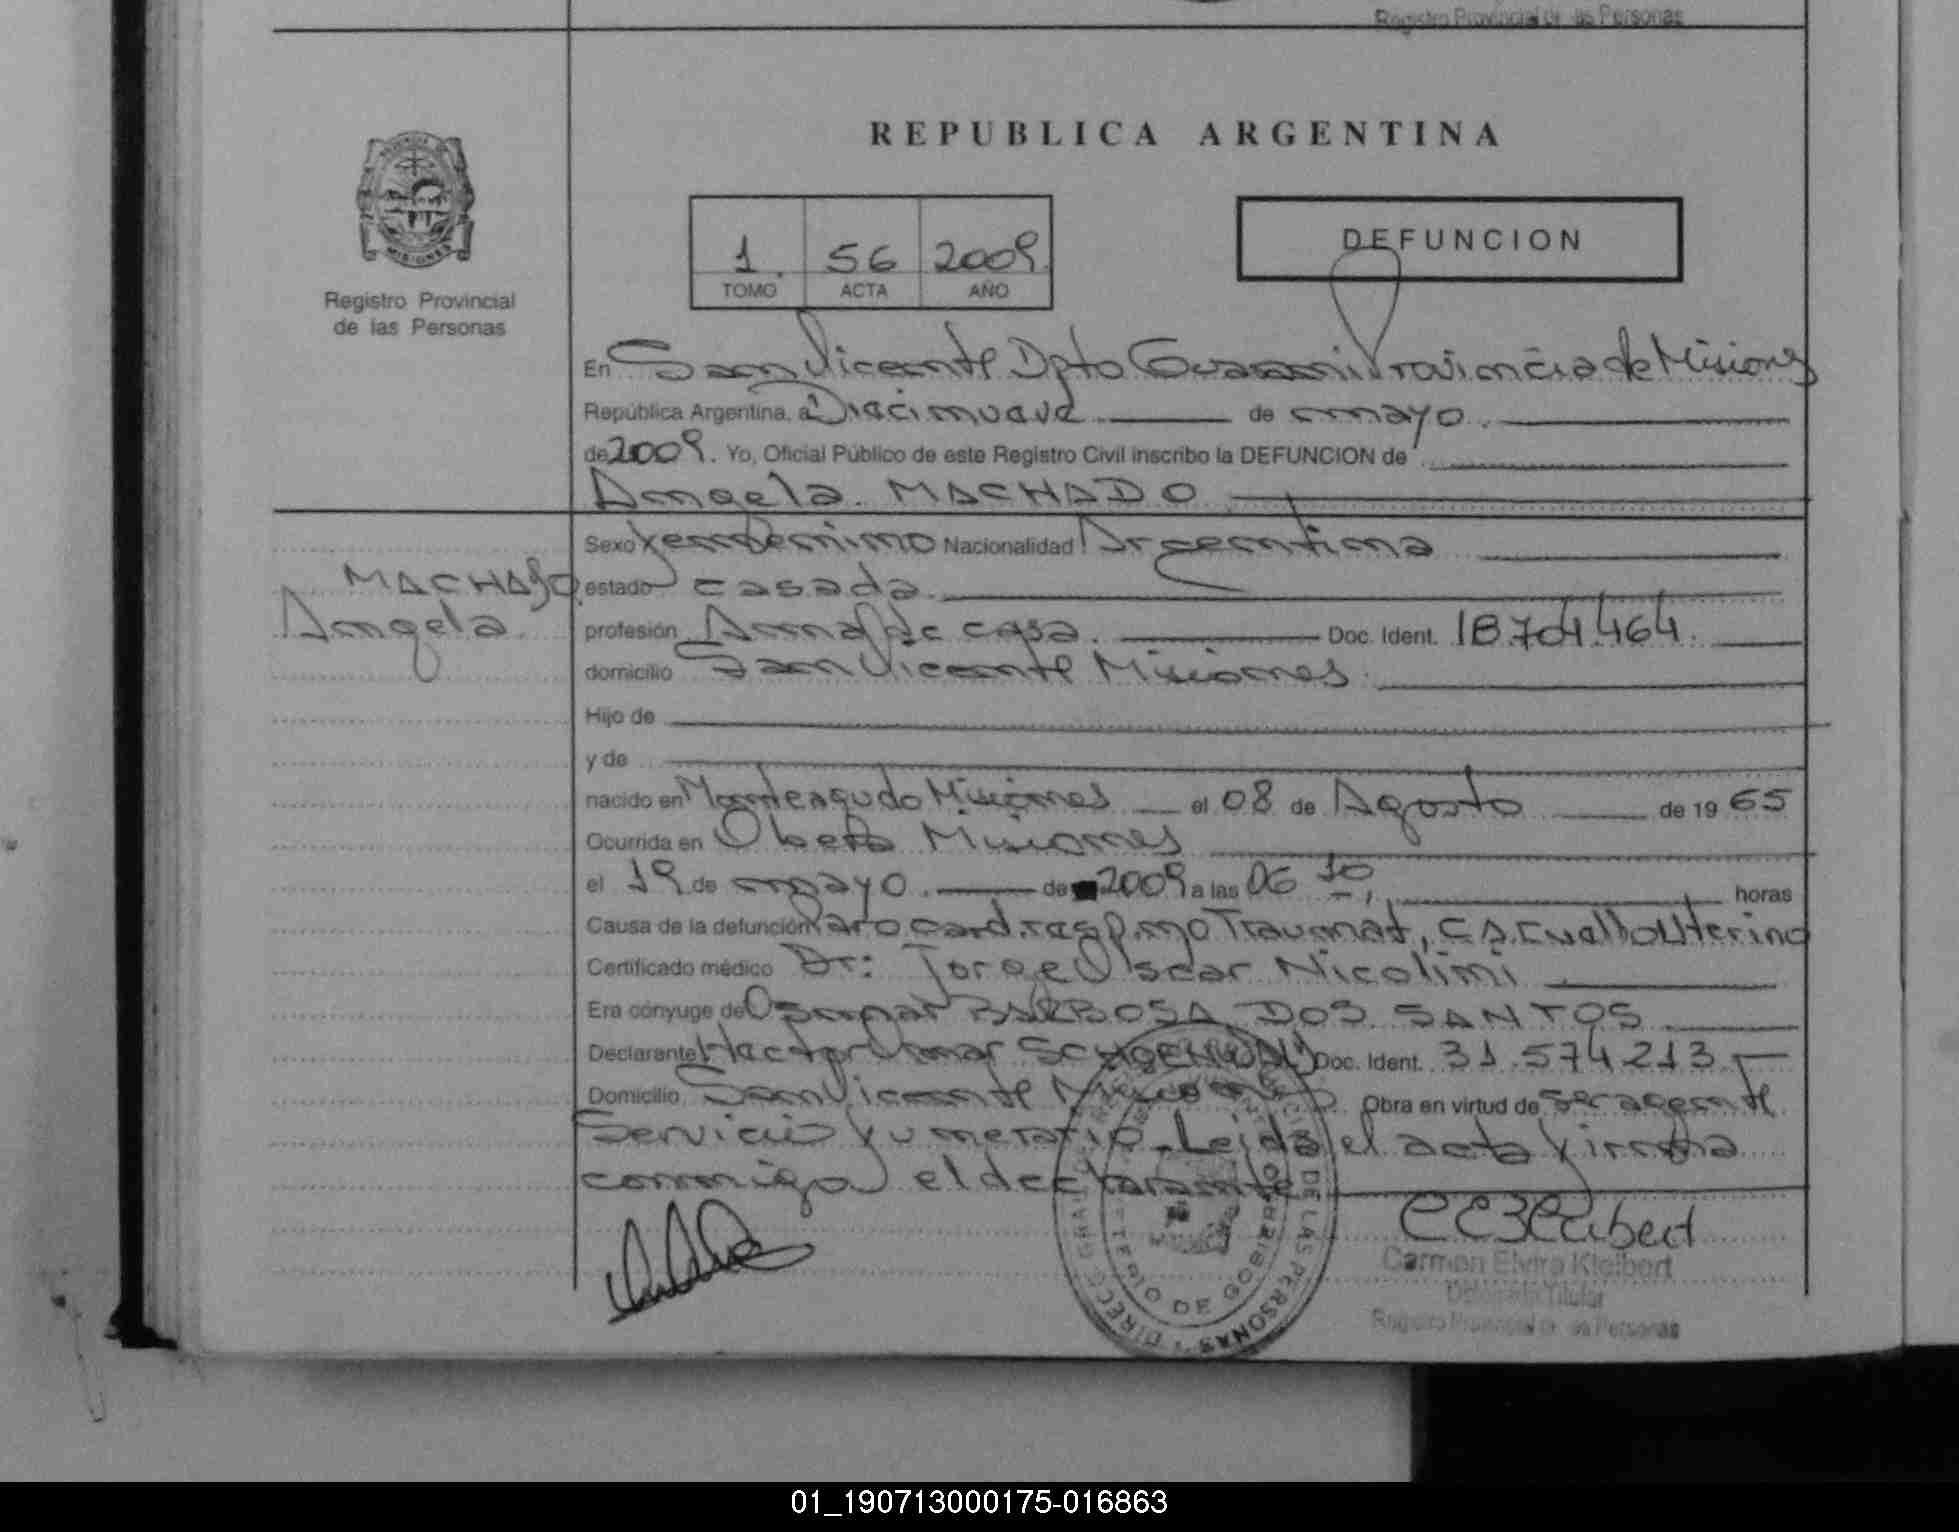 Registro Provincial de las Personas
REPUBLICA ARGENTINA
MISIONES
Registro Provincial
de las Personas
1. 56 2009.
TOMO ACTA AÑO
DEFUNCION
En San Vicente Dpto Guarani Provincia de Misiones
República Argentina, a Diecinueve de mayo.
de 2009. Yo, Oficial Público de este Registro Civil inscribo la DEFUNCION de
Angela MACHADO
MACHADO
Angela
Sexo femenino Nacionalidad Argentina
estado casada.
profesión Ama de casa. Doc. Ident. 18.704.464.
domicilio San Vicente Misiones
Hijo de
y de
nacido en Monteagudo Misiones el 08 de Agosto de 19 65
Ocurrida en Obera Misiones
el 19 de mayo de 2009 a las 06 10 horas
Causa de la defunción Paro card. resp. no Traumat, CA. Cuello Uterino
Certificado médico Dr: Jorge Oscar Nicolini
Era cónyuge de Osmar BARBOSA DOS SANTOS
Declarante Hector Omar Doc. Ident. 31.574.213.
Domicilio San Vicente Misiones Obra en virtud de ser agente
Servicio Funerario. Leida el acta firma
conmigo el declarante
Carmen Elvira Kleibert
Delegada Titular
Registro Provincial de las Personas
DE LAS PERSONAS
MINISTERIO DE GOBIERNO
01_190713000175-016863